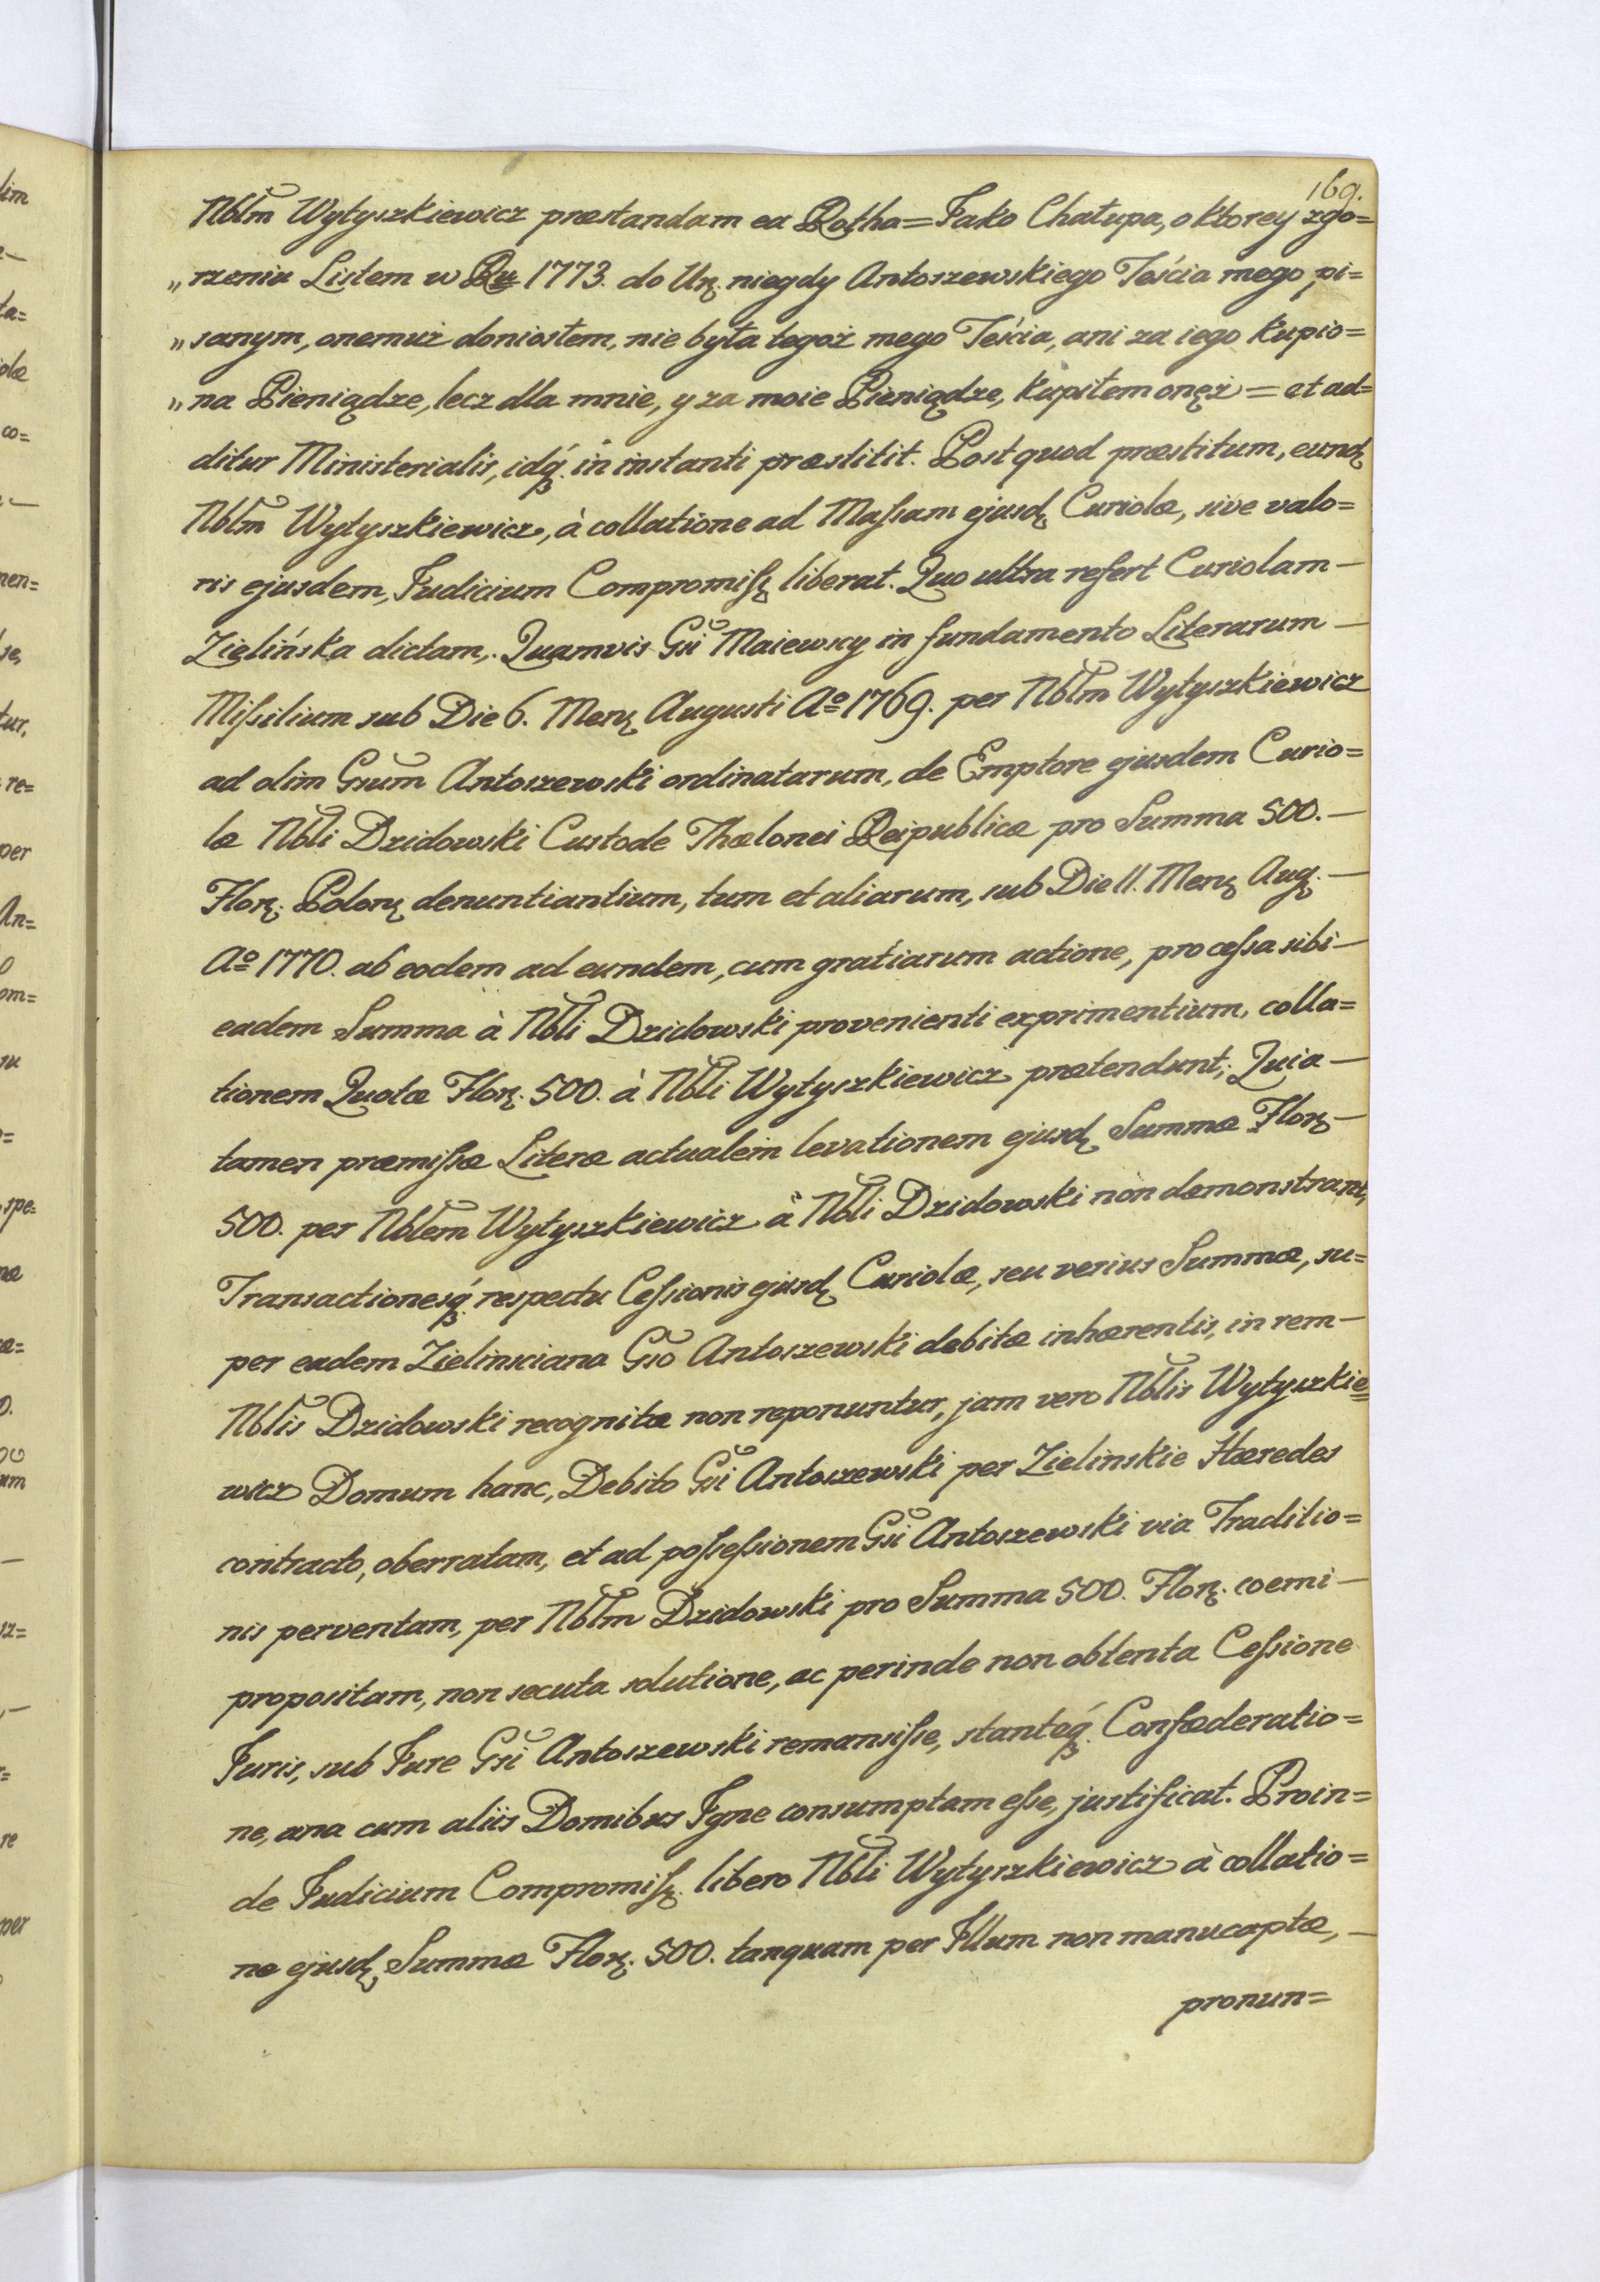 169.
Nbl̃m Wytyszkiewicz præstandam ea Rotha = Jako Chałupa, o ktorey zgo=
„rzeniu Listem w Ru 1773. do Ur. niegdy Antoszewskiego Teścia mego pi=
„sanym, onemuż doniosłem, nie była tegoż mego Teścia, ani za iego kupio=
„na Pieniądze, lecz dla mnie, y za moie Pieniądze, kupiłem onęż = et ad=
ditur Ministerialis, idq́ in instanti præstitit. Post quod præstitum, eund
Nbl̃m Wytyszkiewicz, à collatione ad Massam ejusd Curiolæ, sive valo=
ris ejusdem, Judicium Compromiss liberat. Quo ultra refert Curiolam —
Zielińska dictam, Quamvis Gsi Maiewscy in fundamento Literarum —
Missilium sub Die 6. Mens Augusti Aº 1769. per Nbl̃m Wytyszkiewicz
ad olim Gsum Antoszewski ordinatarum, de Emptore ejusdem Curio=
læ Nbli Dzidowski Custode Thælonei Reipublicæ pro Summa 500. —
Flor. Polon denuntiantium, tum et aliarum, sub Die 11. Mens Aug. —
Aº 1770. ab eodem ad eundem, cum gratiarum actione, pro cessa sibi —
eadem Summa à Nbli Dzidowski provenienti exprimentium, colla=
tionem Quotæ Flor. 500. à Nbli Wytyszkiewicz prætendunt; Quia —
tamen præmissæ Literæ actualem levationem ejusd Summæ Flor —
500. per Nblem Wytyszkiewicz à Nbli Dzidowski non dæmonstrant,
Transactionesq́ respectu Cessionis ejusd Curiolæ, seu verius Summæ, su=
per eadem Zielinsciana Gso Antoszewski debitæ inhærentis, in rem —
Nblis Dzidowski recognitæ non reponuntur, jam vero Nblis Wytyszkie=
wicz Domum hanc, Debito Gsi Antoszewski per Zielinskie Hæredes
contracto, oberratam, et ad possessionem Gsi Antoszewski via Traditio=
nis perventam, per Nbl̃m Dzidowski pro Summa 500. Flor. coemi —
propositam, non secuta solutione, ac perinde non obtenta Cessione
Juris, sub Jure Gsi Antoszewski remansisse, stanteq́ Confæderatio=
ne, una cum aliis Domibus Igne consumptam esse, justificat. Proin=
de Judicium Compromiss. libero Nbli Wytyszkiewicz à collatio=
ne ejusd Summæ Flor. 500. tanquam per Illum non manucaptæ, —
pronun=